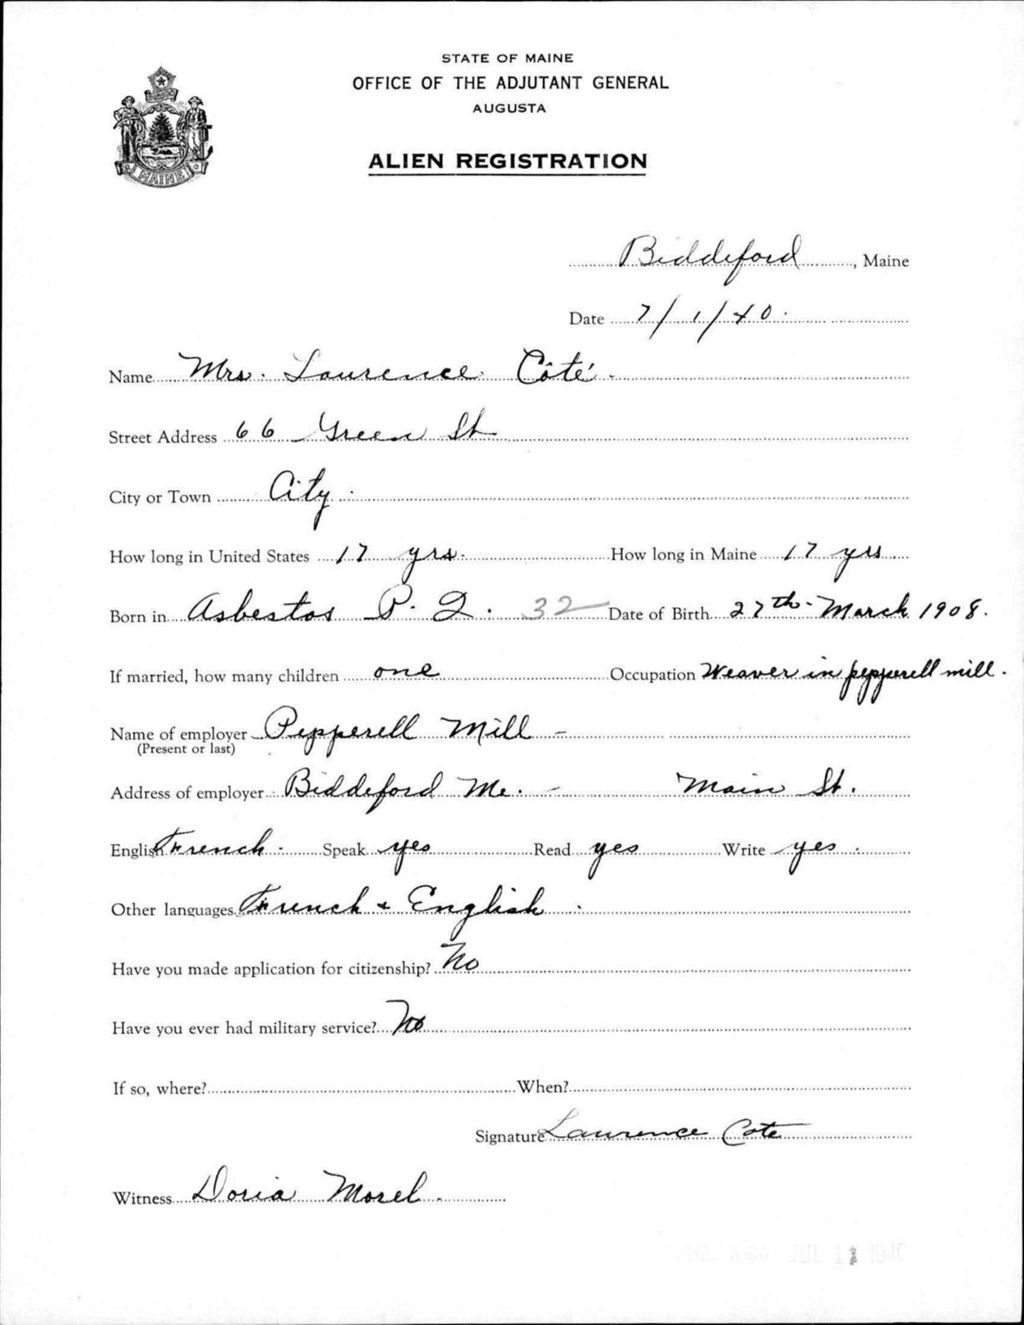 STATE OF MAINE
OFFICE OF THE ADJUTANT GENERAL
AUGUSTA
ALIEN REGISTRATION
MAINE
Biddeford, Maine
Date 7/1/40.
Name Mrs. Laurence Côté.
Street Address 66 Green St
City or Town City.
How long in United States 17 yrs. How long in Maine 17 yrs
Born in Asbestos P.Q. 32 Date of Birth 27th March 1908.
If married, how many children one Occupation Weaver in pepperell mill.
Name of employer Pepperell Mill -
(Present or last)
Address of employer Biddeford Me. - Main St.
English French. Speak yes Read yes Write yes.
Other languages French & English.
Have you made application for citizenship? No
Have you ever had military service? No
If so, where? When?
Signature Laurence Cote
Witness Doria Morel.
JUL 1940